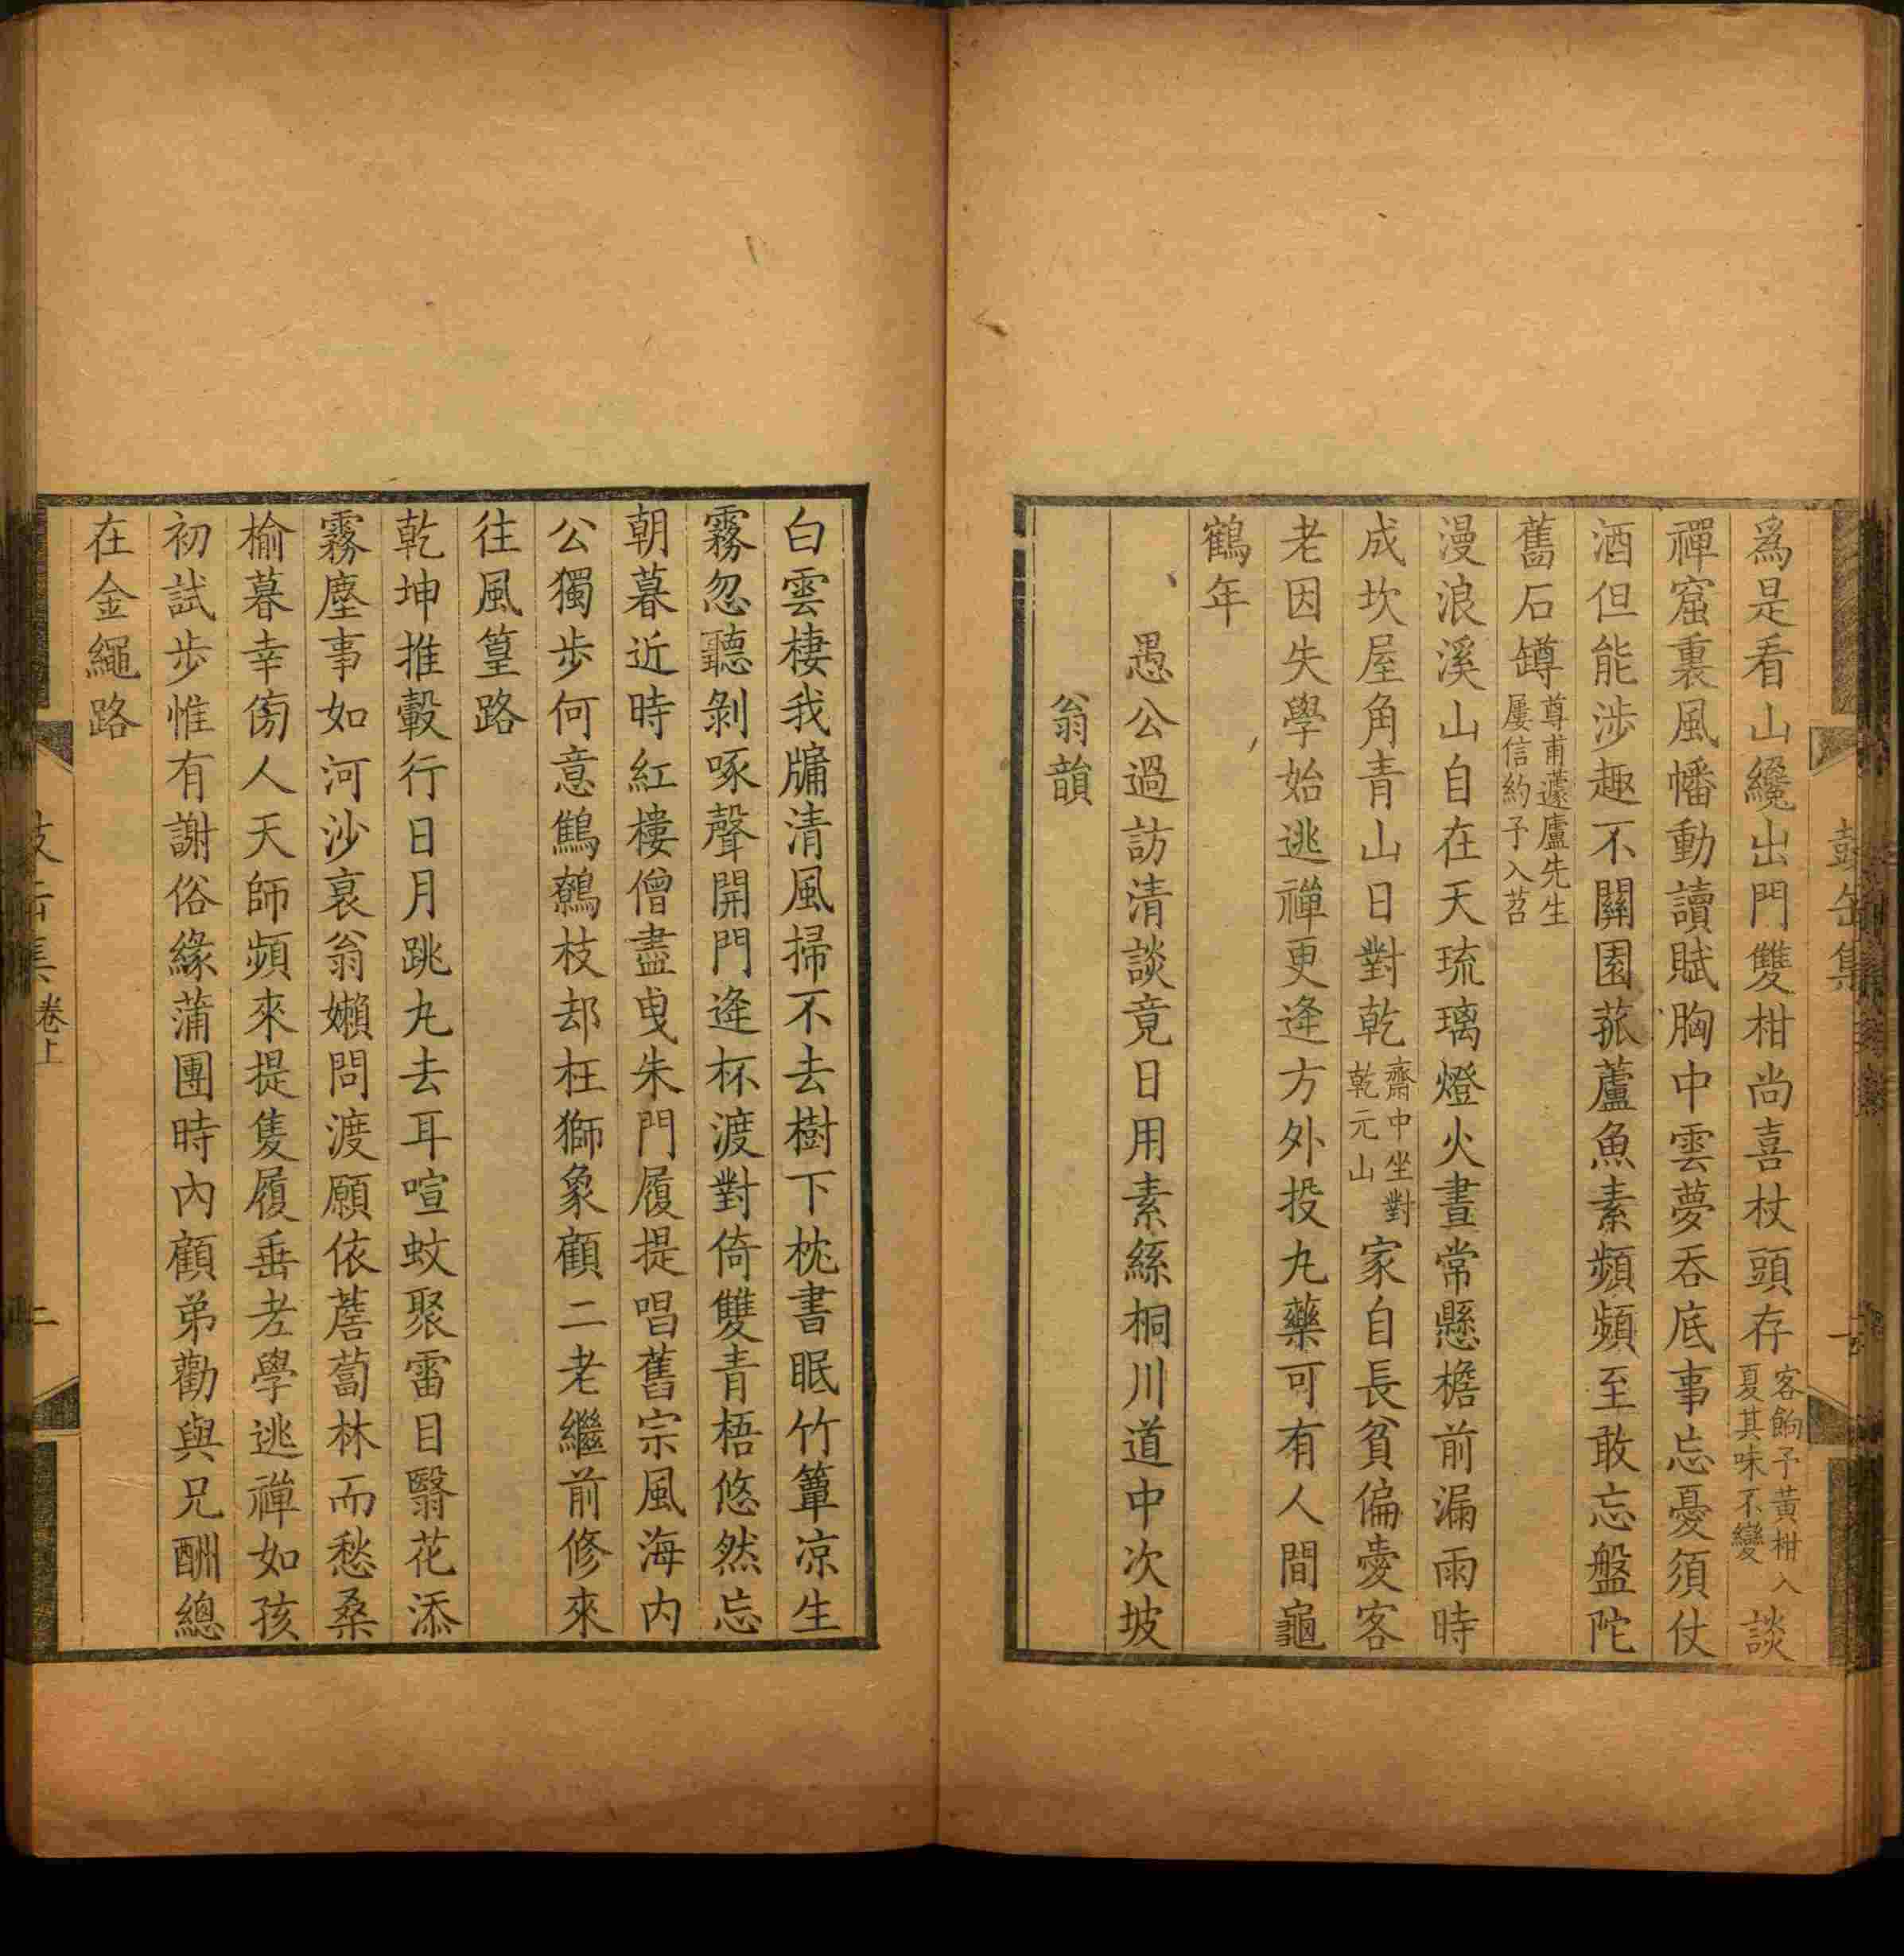 爲是看山纔出門雙柑尚喜杖頭存客餉予黃柑入夏其味不變談
禪窟裏風幡動讀賦胸中雲夢吞底事忘憂須仗
酒但能涉趣不關園菰蘆魚素頻頻至敢忘盤陀
舊石罇尊甫蘧廬先生屢信約予入苕
漫浪溪山自在天琉璃燈火晝常懸檐前漏雨時
成坎屋角青山日對乾齋中坐對乾元山家自長貧偏愛客
老因失學始逃禪更逢方外投丸藥可有人間龜
鶴年
愚公過訪清談竟日用素絲桐川道中次坡
翁韻
白雲棲我牖清風掃不去樹下枕書眠竹簟凉生
霧忽聽剝啄聲開門逢杯渡對倚雙青梧悠然忘
朝暮近時紅樓僧盡曳朱門履提唱舊宗風海内
公獨步何意鷦鷯枝却枉獅象顧二老繼前修來
往風篁路
乾坤推轂行日月跳丸去耳喧蚊聚雷目翳花添
霧塵事如河沙衰翁嬾問渡願依薝蔔林而愁桑
榆暮幸傍人天師頻來提隻履垂老學逃禪如孩
初試步惟有謝俗緣蒲團時內顧弟勸與兄酬總
在金繩路
鼓缶集
卷上
二